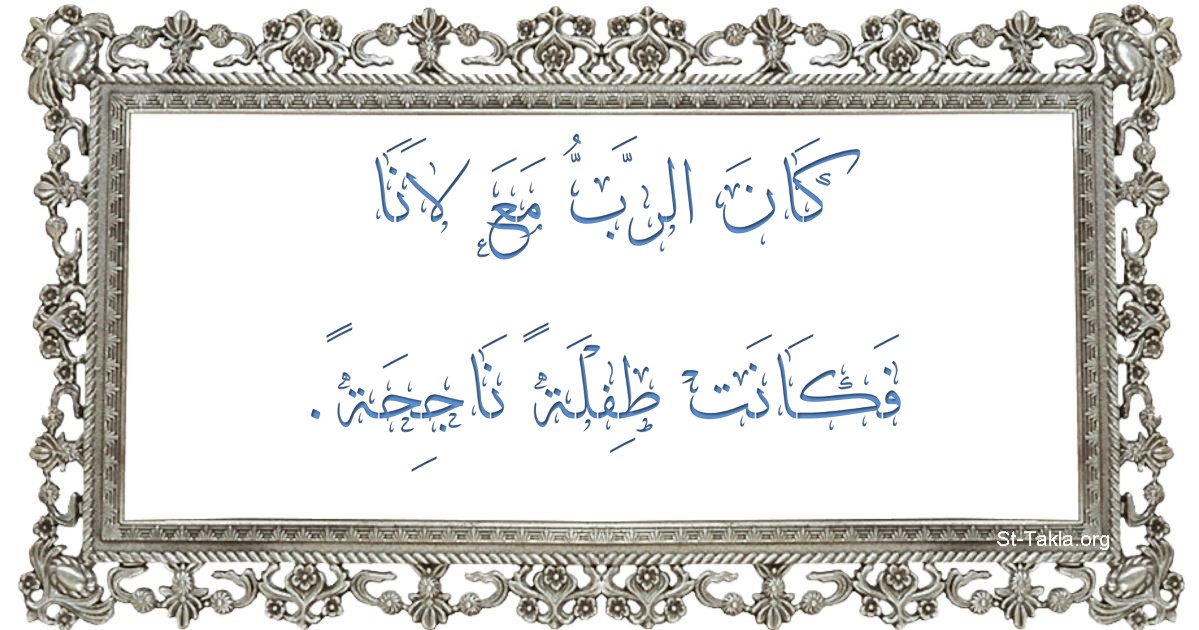 كَانَ الرَّبُّ مَعَ لانَا
فَكَانَت طِفْلَةً نَاجِحَةً.
St-Takla.org